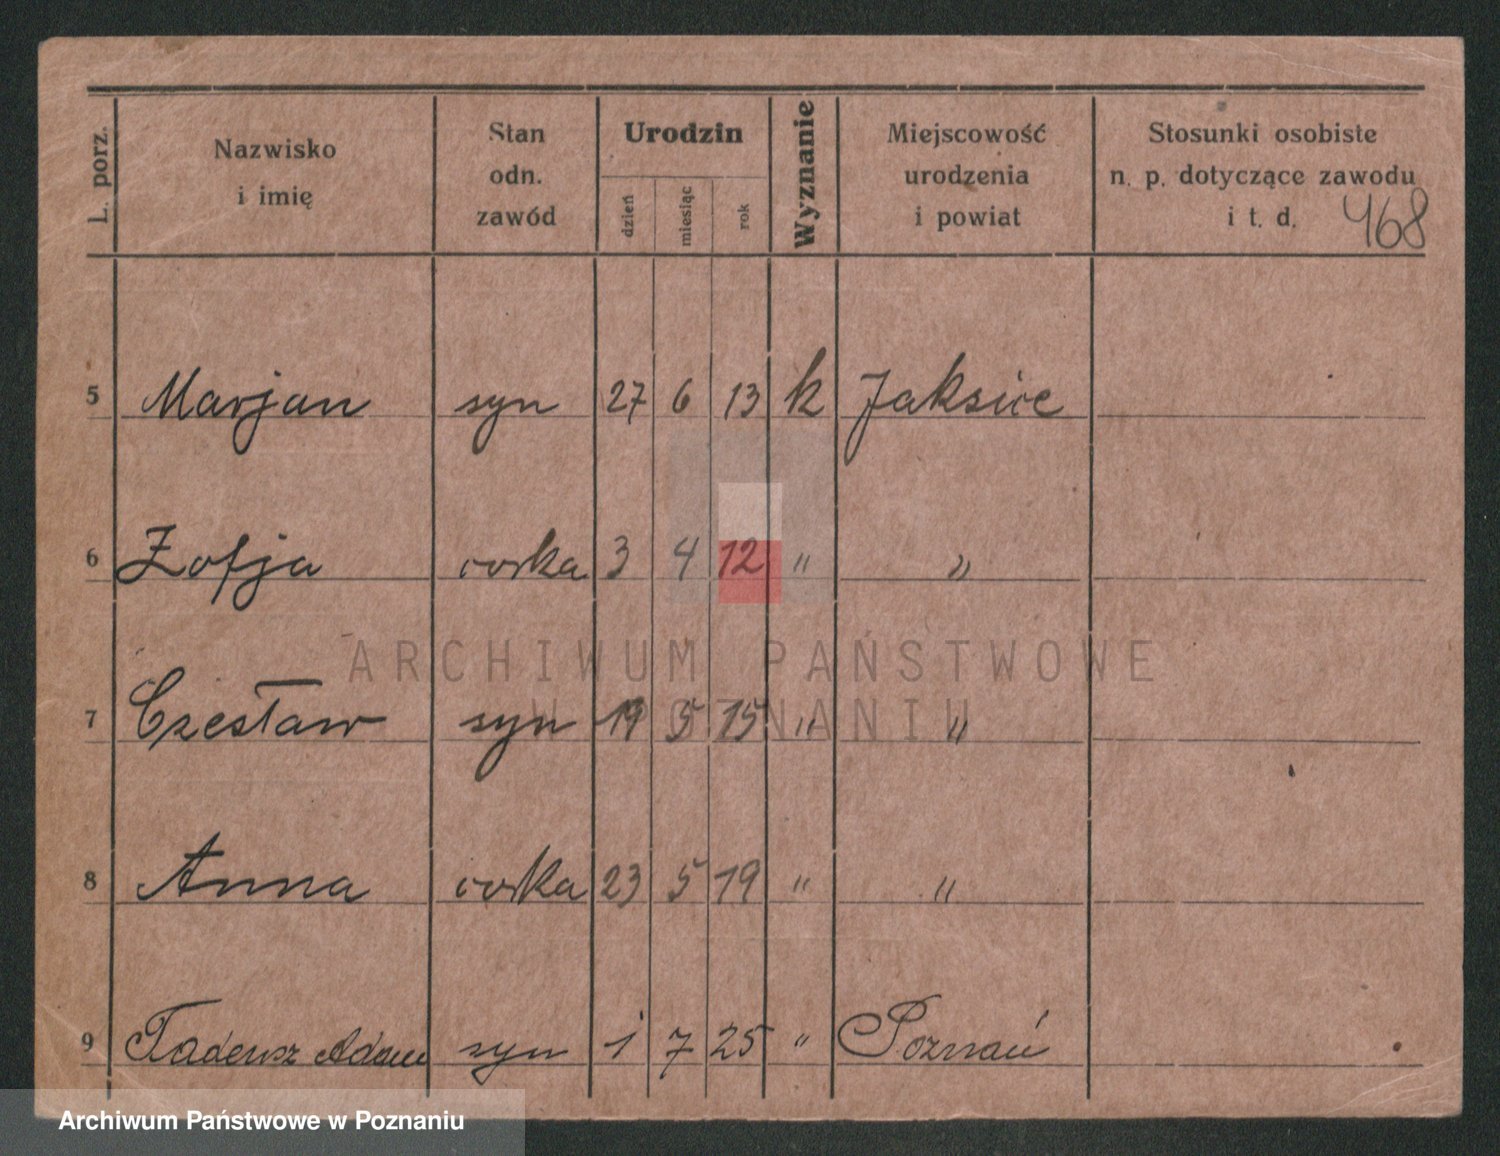 L. porz.
Nazwisko i imię
Stan odn. zawód
Urodzin
dzień miesiąc rok
Wyznanie
Miejscowość urodzenia i powiat
Stosunki osobiste n. p. dotyczące zawodu i t. d.
468
5 Marjan syn 27 6 13 k Jaksice
6 Zofja córka 3 4 12 " "
ARCHIWUM PAŃSTWOWE
W POZNANIU
7 Czesław syn 19 5 15 " "
8 Anna córka 23 5 19 " "
9 Tadeusz Adam syn 1 7 25 " Poznań
Archiwum Państwowe w Poznaniu